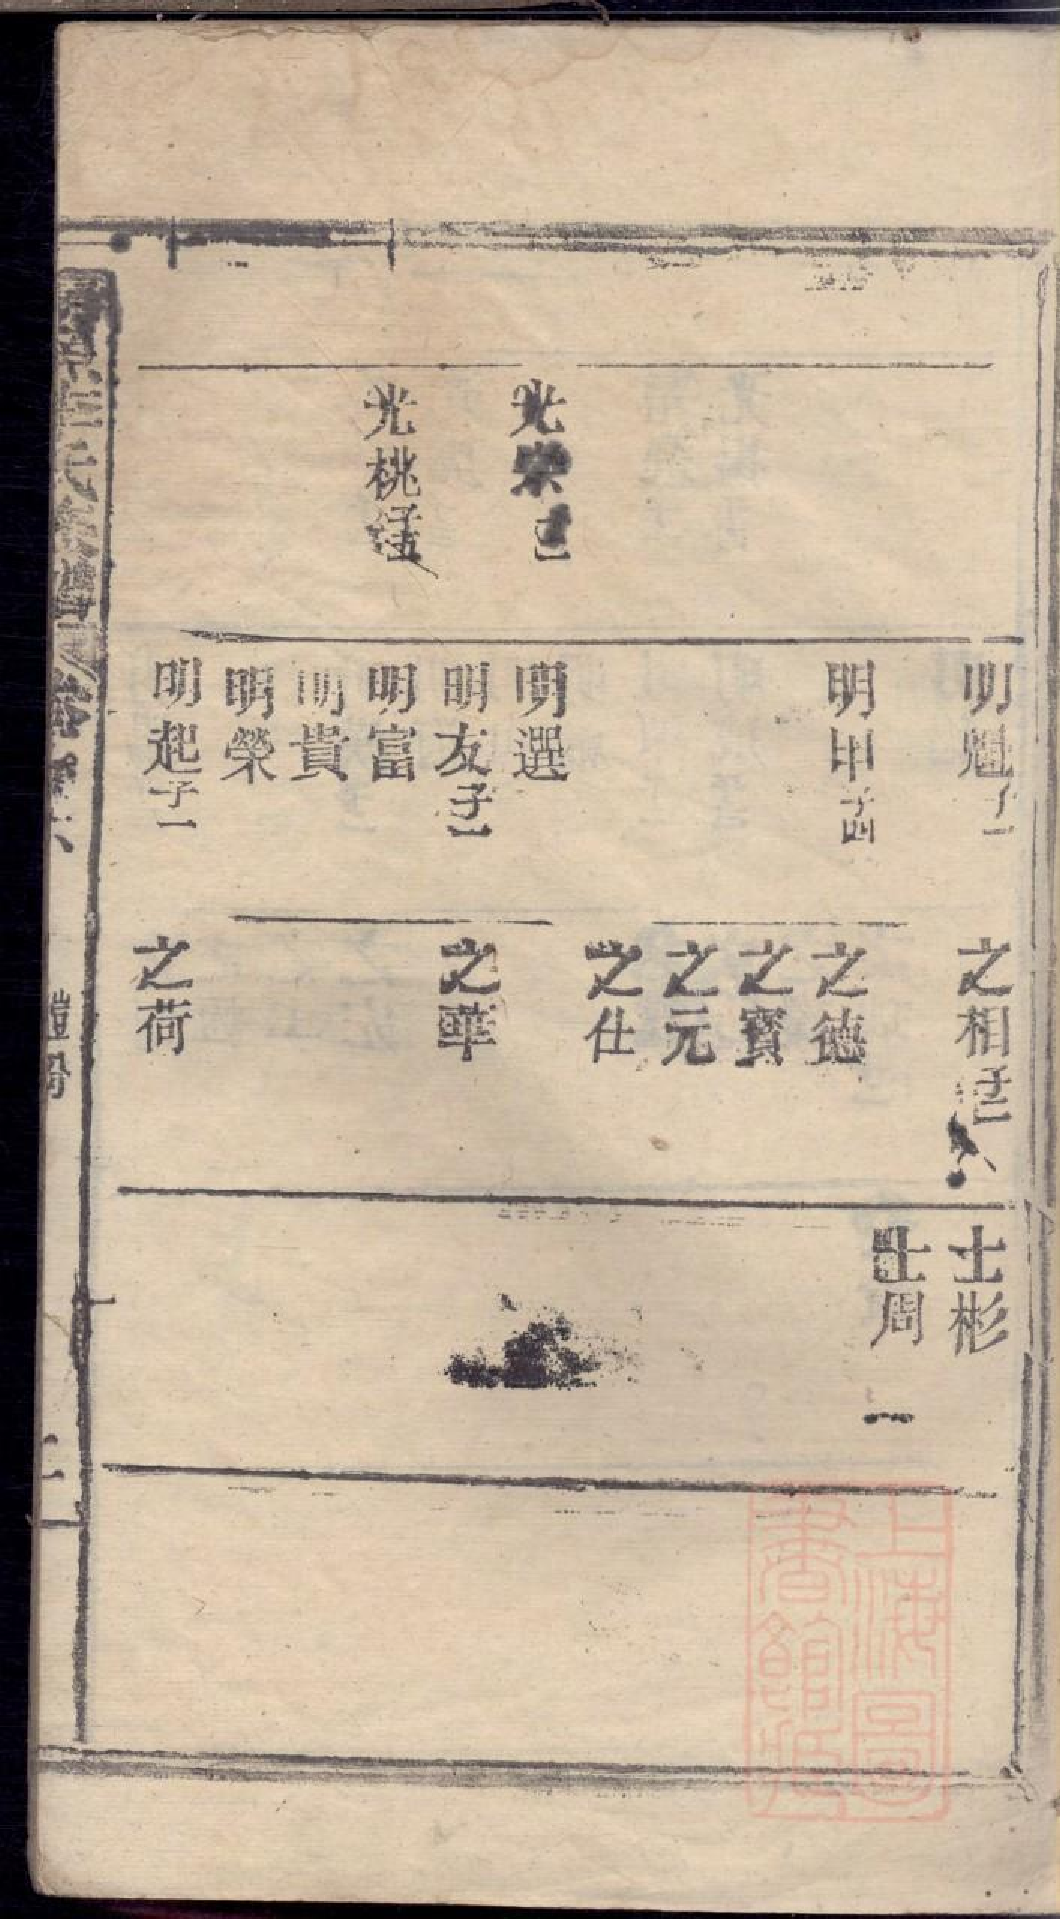 光宗
光桃
明魁子一
明甲子四
明選
明友子一
明富
明貴
明榮
明起子一
之相
之德
之寳
之元
之仕
之華
之荷
士彬
士周
上海圖
書館藏